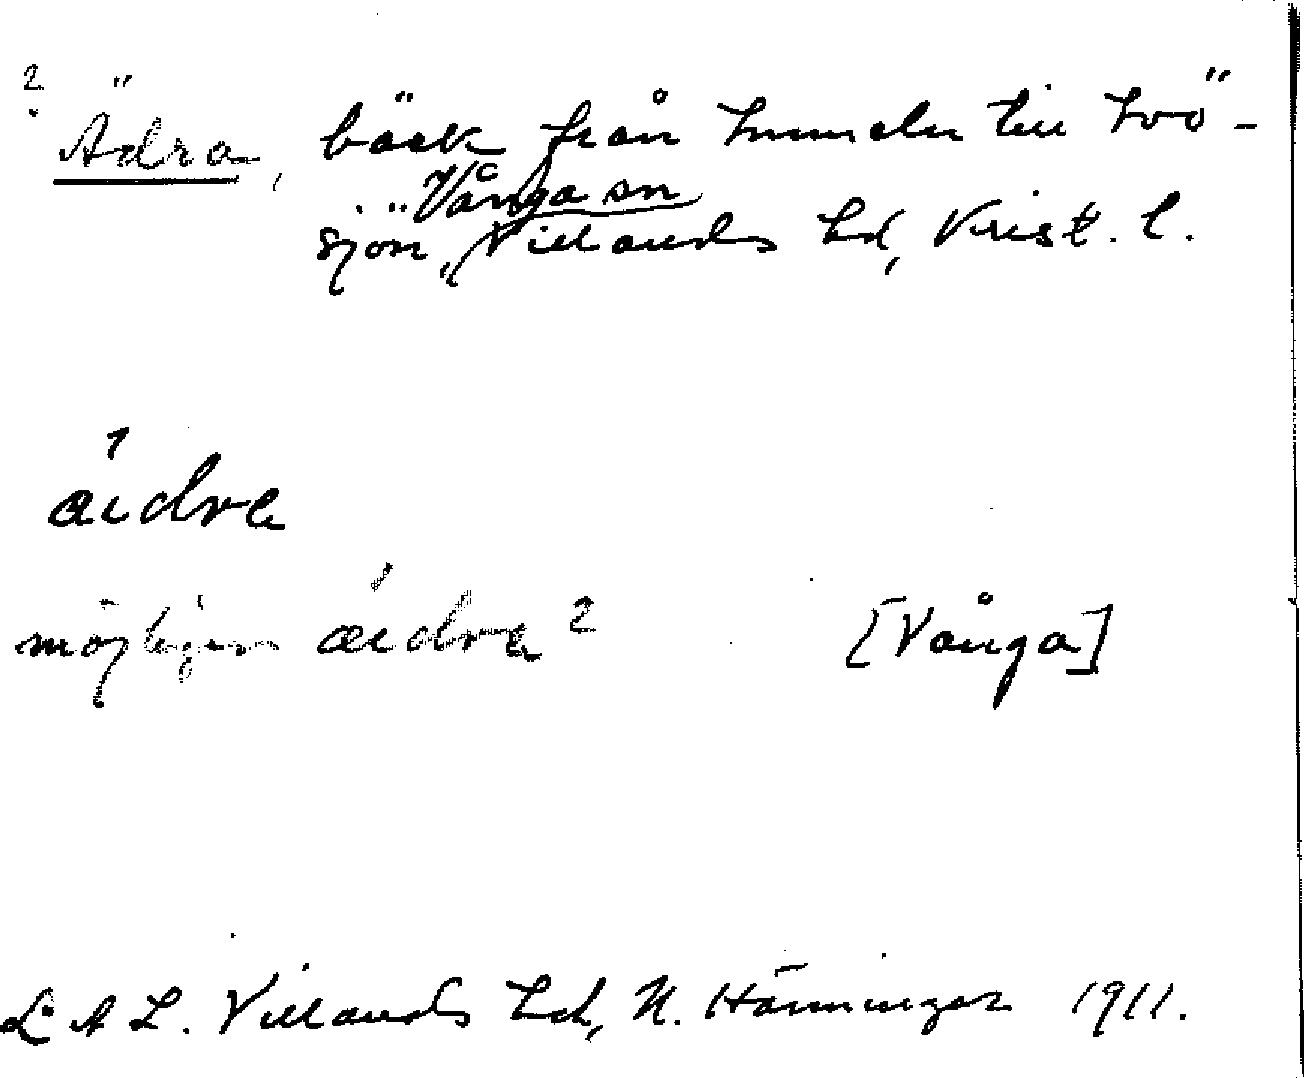 ? Ädra, bäck från Immeln till Ivö-
Vånga sn
sjön, Villands hd, Krist. l.
äidra
möjligen äidra? [Vånga]
L A L. Villands hd, N. Hänninger 1911.